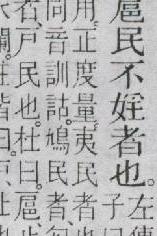 扈民不婬者也。左傳
子曰
用正度量夷民者也
同音訓詁。鳩民者
戶民也。杜曰。扈止
皆曰。戶